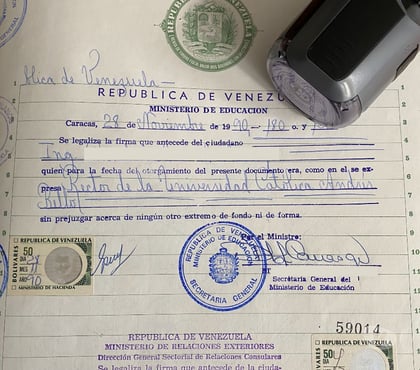 REPUBLICA DE VENEZUELA
blica de Venezuela —
REPUBLICA DE VENEZU
MINISTERIO DE EDUCACION
Caracas, 28 de Noviembre de 1990 — 180 o. y
Se legaliza la firma que antecede del ciudadano
Ing.
quien para la fecha del otorgamiento del presente documento era, como en el se ex-
presa Rector de la Universidad Católica Andrés
Bello
sin prejuzgar acerca de ningún otro extremo de fondo ni de forma.
Por el Ministro:
REPUBLICA DE VENEZUELA
BOLIVARES 50
DIA
AÑO 90
MINISTERIO DE HACIENDA
REPUBLICA DE VENEZUELA
MINISTERIO DE EDUCACION
SECRETARIA GENERAL
Secretaria General del
Ministerio de Educación
59014
REPUBLICA DE VENEZUELA
MINISTERIO DE RELACIONES EXTERIORES
Dirección General Sectorial de Relaciones Consulares
Se legaliza la firma que antecede de la ciuda-
REPUBLICA DE VENEZUELA
50